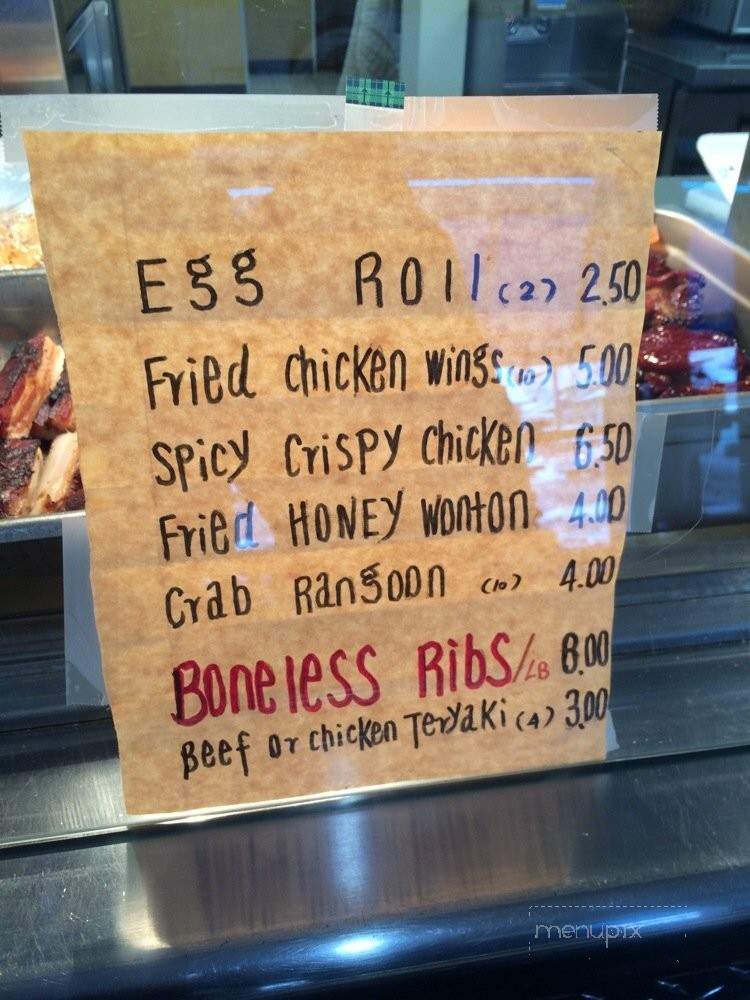 Egg Roll (2) 2.50
Fried chicken wings (10) 5.00
Spicy Crispy Chicken 6.50
Fried HONEY Wonton 4.00
Crab Rangoon (10) 4.00
Boneless Ribs/LB
Beef or chicken Teryaki (4) 3.00
menupix